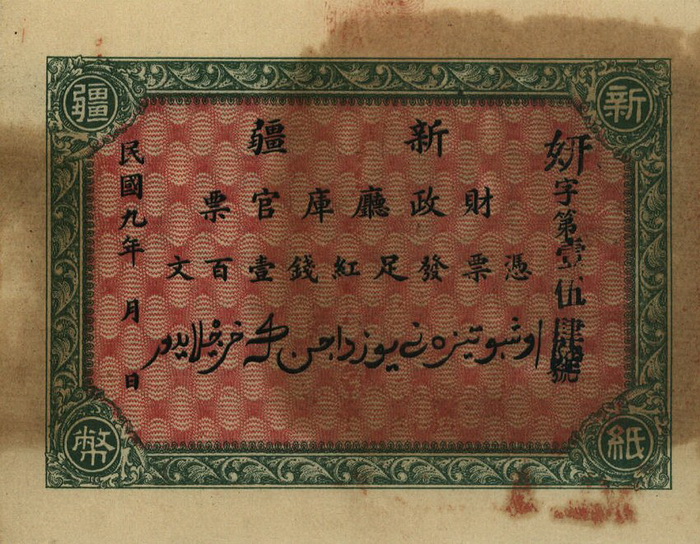 新疆
紙幣
妍字第壹伍肆號
新疆
財政廳庫官票
憑票發足紅錢壹百文
اوشبو تيزه نى يوز داجن كه خرجلايدور
民國九年 月 日